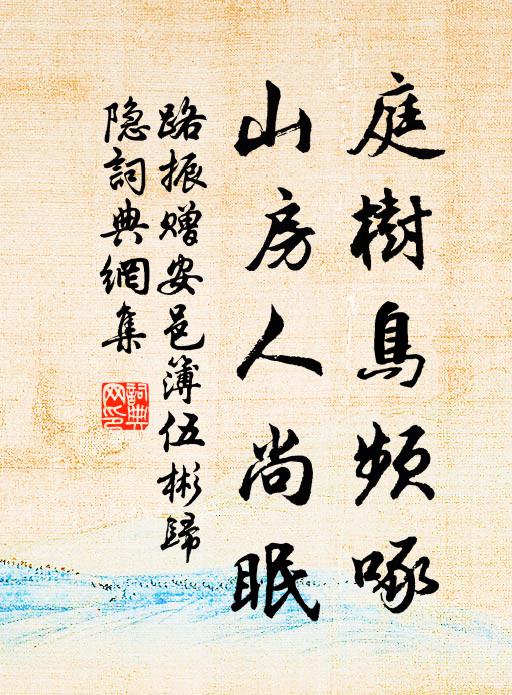 庭樹鳥頻啄
山房人尚眠
路振贈安邑簿伍彬歸
隐詞典網集
詞典
网印